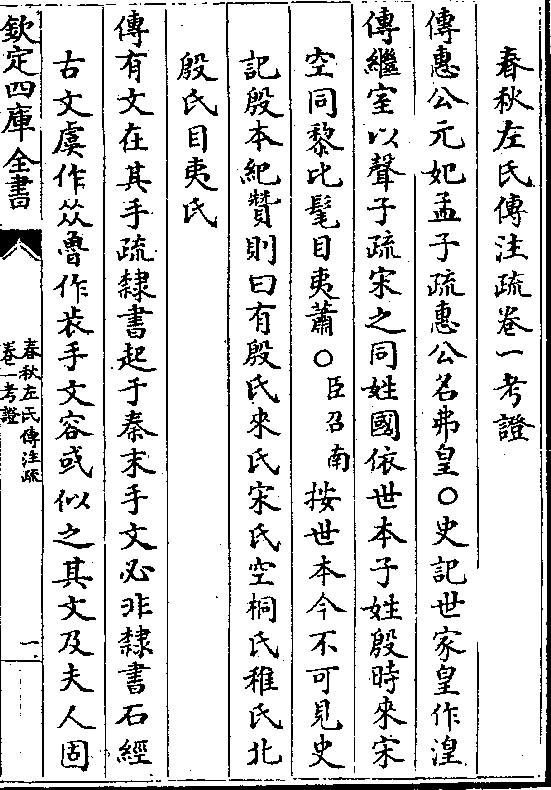 春秋左氏傳注疏卷一考證
傳惠公元妃孟子疏惠公名弗皇○史記世家皇作湟
傳繼室以聲子疏宋之同姓國依世本子姓殷時來宋
空同黎比髦目夷蕭○臣召南按世本今不可見史
記殷本紀贊則曰有殷氏來氏宋氏空桐氏稚氏北
殷氏目夷氏
傳有文在其手疏隸書起于秦末手文必非隸書石經
古文虞作𠈌魯作𣥐手文容或似之其文及夫人固
欽定四庫全書
春秋左氏傳注疏
卷一考證
一